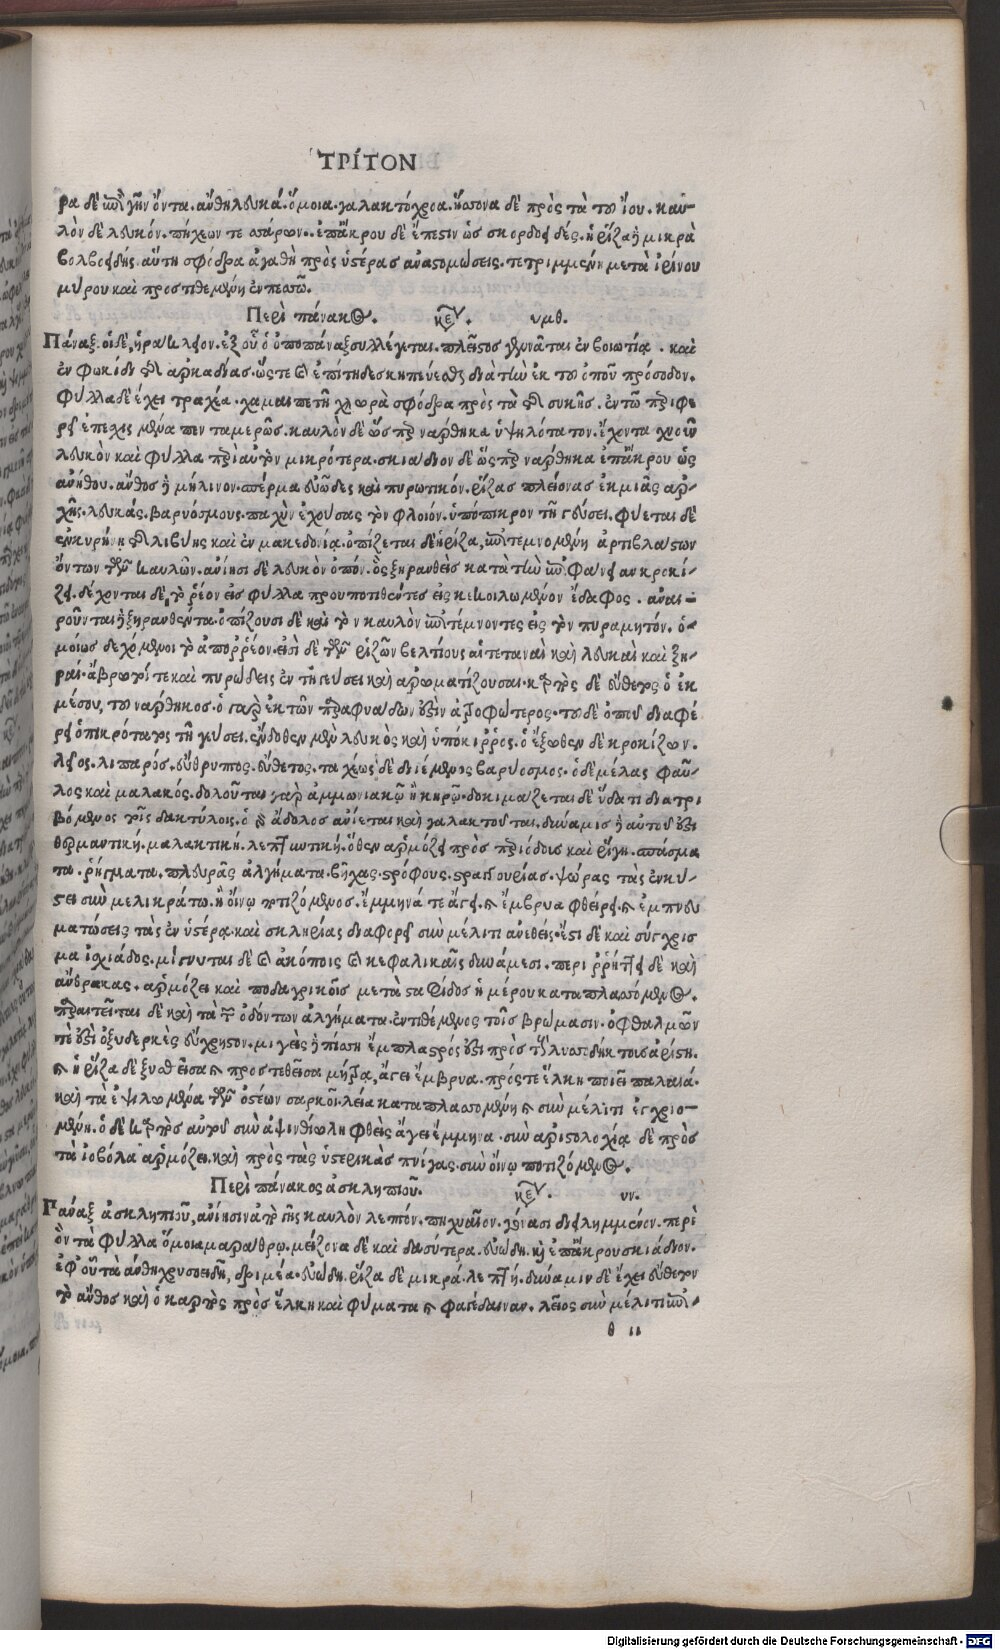 ΤΡΙΤΟΝ
ρα δὲ ἐπὶ γῆν ὄντα. ἄνθη λευκά. ὅμοια. γαλακτόχροα. ἥσσονα δὲ πρὸς τὰ τοῦ ἴου. καυ-
λὸν δὲ λευκόν. πήχεων τεσσάρων. ἐπ' ἄκρου δὲ ἔπεστιν ὡς σκορδοειδές. ἡ ῥίζα ἢ μικρὰ
βολβοειδής. αὕτη σφόδρα ἀγαθὴ πρὸς ὑστέρας ἀναστομώσεις. τετριμμένη μετὰ ἰρίνου
μύρου καὶ προστιθεμένη ἐν πεσσῷ.
Περὶ πάνακος. κε. υμθ.
Πάναξ. οἱ δὲ, ἡράκλειον. ἐξ οὗ ὁ ὀποπάναξ συλλέγεται. πλεῖστος γεννᾶται ἐν βοιωτίᾳ. καὶ
ἐν φωκίδι τῆς ἀρκαδίας. ὥστε καὶ ἐπίτηδες κηπεύεσθαι διὰ τὴν ἐκ τοῦ ὀποῦ πρόσοδον.
φύλλα δὲ ἔχει τραχέα. χαμαιπετῆ χλωρὰ σφόδρα πρὸς τὰ τῆς συκῆς. ἐν τῷ περιφε
ρεῖ ἐπεχισμένα πενταμερῶς. καυλὸν δὲ ὥσπερ νάρθηκα ὑψηλότατον. ἔχοντα χνοῦν
λευκὸν καὶ φύλλα περὶ αὐτὸν μικρότερα. σκιάδιον δὲ ὥσπερ νάρθηκα ἐπ' ἄκρου ὡς
ἀνήθου. ἄνθος ἢ μήλινον. σπέρμα εὐῶδες καὶ πυρωτικόν. ῥίζας πλείονας ἐκ μιᾶς ἀρ-
χῆς. λευκάς. βαρυόσμους. παχὺν ἐχούσας τὸν φλοιόν. ὑπόπικρον τῇ γεύσει. φύεται δὲ
ἐν κυρήνῃ τῆς λιβύης καὶ ἐν μακεδονίᾳ. ὀπίζεται δὲ ἡ ῥίζα, ἐπιτεμνομένη ἀρτιβλάστων
ὄντων τῶν καυλῶν. ἀνίησι δὲ λευκὸν ὀπόν. ὃς ξηρανθεὶς κατὰ τὴν ἐπιφάνειαν κροκί-
ζει. δέχονται δὲ τὸ ῥέον εἰς φύλλα προυποτιθέντες εἰς κεκοιλωμένον ἔδαφος. ἀναι-
ροῦνται ἢ ξηρανθέντα. ὀπίζουσι δὲ καὶ τὸν καυλὸν ἐπιτέμνοντες εἰς τὸν πυραμητόν. ὁ-
μοίως δεχόμενοι τὸ ἀπορρέον. εἰσὶ δὲ τῶν ῥιζῶν βελτίους αἱ τεταναὶ καὶ λευκαὶ καὶ ξη-
ραί. ἄβρωτοί τε καὶ πυρώδεις ἐν τῇ γεύσει καὶ ἀρωματίζουσαι. καρπὸς δὲ εὔθετος ὁ ἐκ
μέσου, τοῦ νάρθηκος. ὁ γὰρ ἐκ τῶν παραφυάδων ἐστὶν ἀτροφώτερος. τοῦ δὲ ὀποῦ διαφέ
ρει ὁ πικρότατος τῇ γεύσει. ἔνδοθεν μὲν λευκὸς καὶ ὑπόκιρρος. ὁ ἔξωθεν δὲ κροκίζων.
λεῖος. λιπαρός. εὔθρυπτος. εὔθετος. ταχέως δὲ διιέμενος βαρύοσμος. ὁ δὲ μέλας φαῦ-
λος καὶ μαλακός. δολοῦται γὰρ ἀμμωνιακῷ ἢ κηρῷ. δοκιμάζεται δὲ ὕδατι διατρι
βόμενος τοῖς δακτύλοις. ὁ γὰρ ἄδολος ἀνίεται καὶ γαλακτοῦται. δύναμις ἢ αὐτοῦ ἐστι
θερμαντική. μαλακτική. λεπτυντική. ὅθεν ἁρμόζει πρὸς περιόδους καὶ ῥίγη. σπάσμα
τα. ῥήγματα. πλευρᾶς ἀλγήματα. βῆχας. στρόφους. στραγγουρίας. ψώρας τὰς ἐν κύ-
στει σὺν μελικράτω. ἢ οἴνῳ ποτιζόμενος. ἔμμηνά τε ἄγει. καὶ ἔμβρυα φθείρει. καὶ ἐμπνευ
ματώσεις τὰς ἐν ὑστέρᾳ. καὶ σκληρίας διαφορεῖ σὺν μέλιτι ἀνεθείς. ἔστι δὲ καὶ σύγχρισ
μα ἰσχιάδος. μίσγυται δὲ καὶ ἀκόποις καὶ κεφαλικαῖς δυνάμεσι. περιρρήττει δὲ καὶ
ἄνθρακας. ἁρμόζει καὶ ποδαγρικοῖς μετὰ σταφίδος ἡμέρου καταπλασσόμενος.
παραιτεῖται δὲ καὶ τὰ τῶν ὀδόντων ἀλγήματα. ἐντιθέμενος τοῖς βρώμασιν. ὀφθαλμῶν
τέ ἐστι ὀξυδερκὲς εὔχρηστον. μιγεὶς ἢ πίσσῃ ἔμπλαστρός ἐστι πρὸς τοὺς λυσσοδήκτους ἀρίστη.
καὶ ἡ ῥίζα δὲ ξυσθεῖσα καὶ προστεθεῖσα μήτρᾳ, ἄγει ἔμβρυα. πρός τε ἕλκη ποιεῖ παλαιά.
καὶ τὰ ἐψιλωμένα τῶν ὀστέων σαρκοῖ. λεία καταπλασσομένη καὶ σὺν μέλιτι ἐγχριο-
μένη. ὁ δὲ καρπὸς αὐτοῦ σὺν ἀψινθίῳ ληφθεὶς ἄγει ἔμμηνα. σὺν ἀριστολοχίᾳ δὲ πρὸς
τὰ ἰοβόλα ἁρμόζει. καὶ πρὸς τὰς ὑστερικὰς πνίγας. σὺν οἴνῳ ποτιζόμενος.
Περὶ πάνακος ἀσκληπιοῦ. κε. υν.
Πάναξ ἀσκληπιοῦ, ἀνίησιν ἀπὸ γῆς καυλὸν λεπτόν. πηχυαῖον. γόνασι διειλημμένον. περὶ
ὃν τὰ φύλλα ὅμοια μαράθρῳ. μείζονα δὲ καὶ δασύτερα. εὐώδη. καὶ ἐπ' ἄκρου σκιάδιον.
ἐφ' οὗ τὰ ἄνθη χρυσοειδῆ, δριμέα. εὐώδη. ῥίζα δὲ μικρά. λεπτή. δύναμιν δὲ ἔχει εὔθετον
τὸ ἄνθος καὶ ὁ καρπὸς πρὸς ἕλκη καὶ φύματα καὶ φαγέδαιναν. λεῖος σὺν μέλιτι ἐπι-
θ ιι
Digitalisierung gefördert durch die Deutsche Forschungsgemeinschaft - DFG